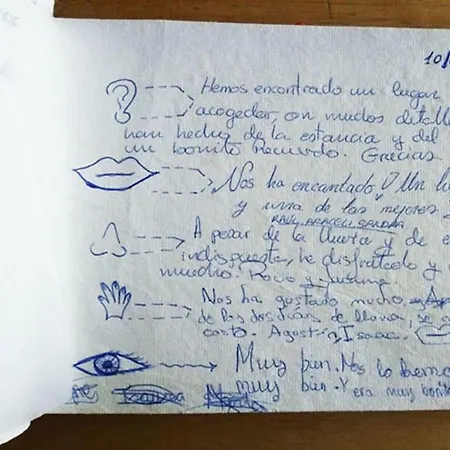 10/
Hemos encontrado un lugar
acogedor, con muchos detall
han hecho de la estancia y del
un bonito recuerdo. Gracias
Nos ha encantado! Un lu
y una de las mejores
RAUL, ARACELI, SANDRA
A pesar de la lluvia y de e
indispuesta, he disfrutado y
mucho. Rocio y
Nos ha gustado mucho,
de los dos días de lluvia, se a
corto. Agustín, Isaac.
Muy bien. Nos lo hemo
muy bien. Y era muy bonit